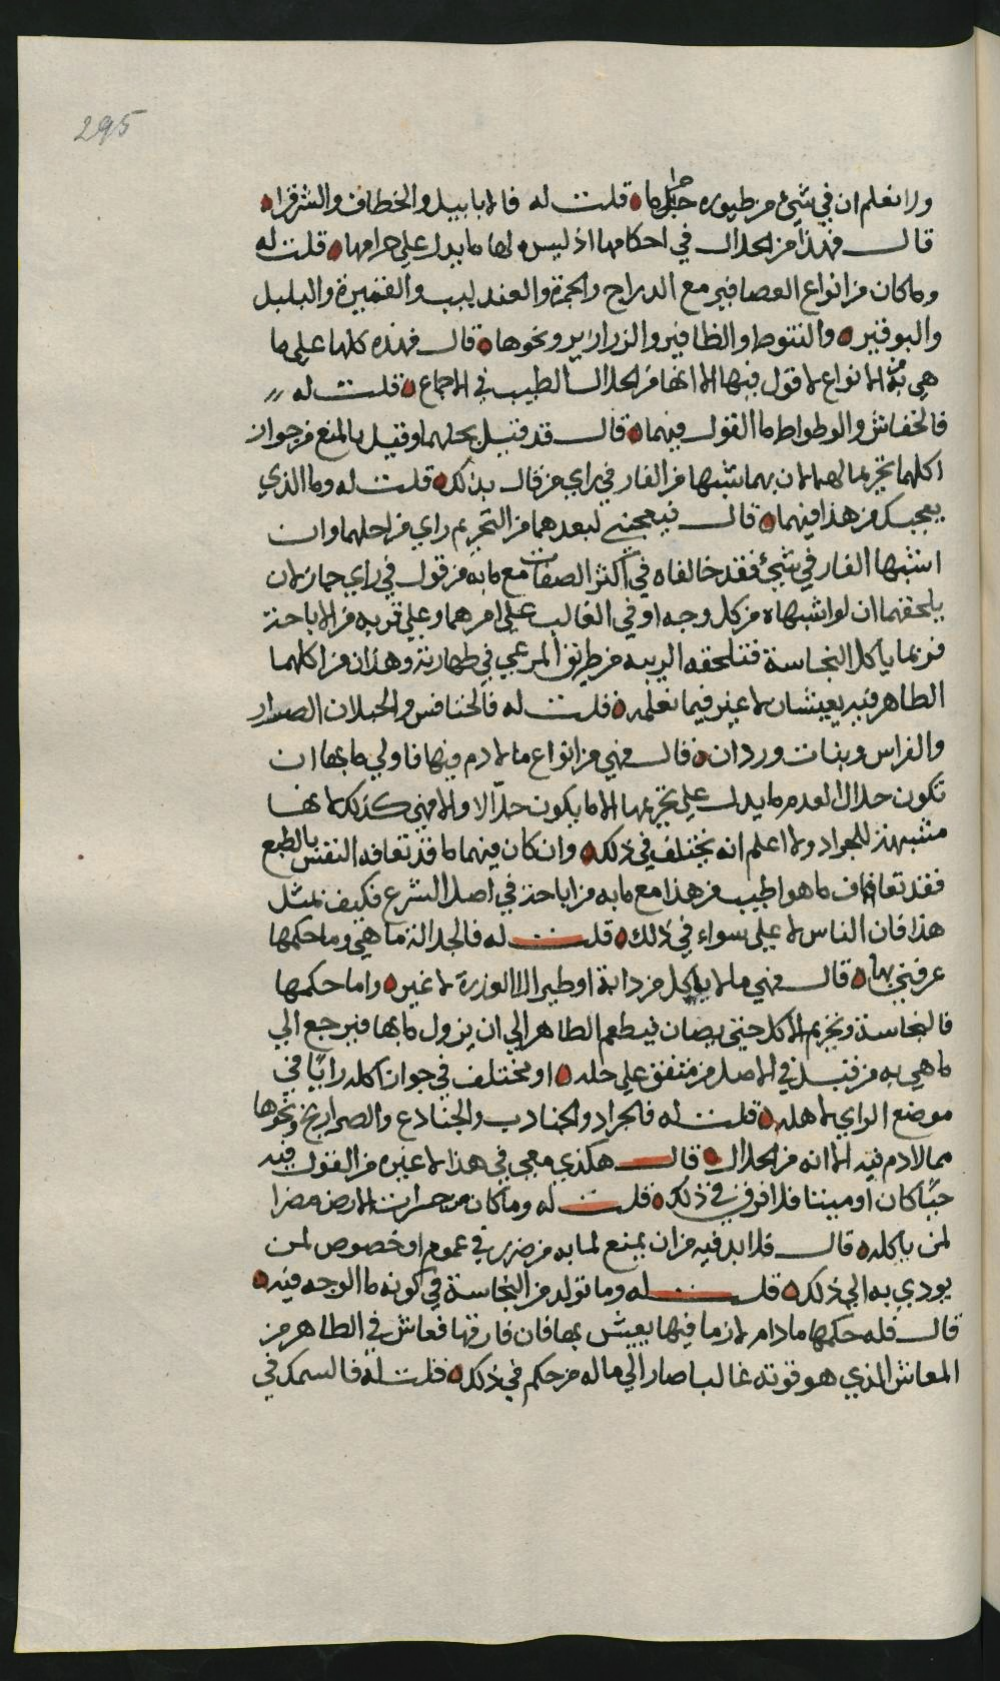 295
ولا نعلم ان في شيء من طيوره حراما قلت له فالابابيل والخطاف والشرقراه
قال فهذا من الحلال في احكامها اذ ليس لها ما يدل على حرامها قلت له
وما كان من انواع العصافير مع الدراج والحمرة والعندليب والقنبرة والبلبل
والبوقير والتنوط او الظافير والزرازير ونحوها قال فهذه كلها على ما
هي به من الانواع لا قول فيها الا انها من الحلال الطيب في الاجماع قلت له
فالخفاش والوطواط ما القول فيهما قال قد قيل بحلهما وقيل بالمنع من جواز
اكلهما تحريما لهما لان بهما شبها من الفار في راي من قال بذلك قلت له وما الذي
يعجبك من هذا فيهما قال فيعجبني لبعدهما من التحريم راي من احلهما وان
اشبها الفار في شيء فقد خالفاه في اكثر الصفات مع ما به من قول في راي جاز لان
يلحقهما ان لو اشبهاه من كل وجه او في الغالب على امرهما وعلى قربه من الاباحة
فربما ياكل النجاسة فتلحقه الريبه من طريق المرعي في طهارته وهذان من اكلهما
الطاهر فيه يعيشان لا غير فيما نعلمه قلت له فالخنافس والجعلان الصرار
والفراش وبنات وردان قال فهي من انواع ما لا دم فيها فاولى ما بها ان
تكون حلالا لعدم ما يدل على تحريمها الا ما يكون حلالا والا فهي كذلك لانها
مشبهة للجراد ولا اعلم انه يختلف في ذلك وان كان فيهما ما قد تعافه النفس بالطبع
فقد تعاف ما هو اطيب من هذا مع ما به من اباحة في اصل الشرع فكيف بمثل
هذا فان الناس لا على سواء في ذلك قلت له فالجلالة ما هي وما حكمها
عرفني بها قال فهي ما لا ياكل من دابة او طير الا العذرة لا غير واما حكمها
فالنجاسة وتحريم الاكل حتى يصان فيطعم الطاهر الى ان يزول ما بها فيرجع الى
ما هي به من قبل في الاصل من متفق على حله او مختلف في جواز اكله رايا في
موضع الراي لاهله قلت له فالجراد والجنادب والجنادع والصراريخ ونحوها
مما لا دم فيه الا انه من الحلال قال هكذي معي في هذا لا غيره من القول فيه
حيا كان او ميتا فلا فرق في ذلك قلت له وما كان من حشرات الارض مضرا
لمن ياكله قال فلا بد فيه من ان يمنع لما به من ضرر في عموم او خصوص لمن
يودي به الى ذلك قلت له وما تولد من النجاسة في كونه ما الوجه فيه
قال فله حكمها ما دام لازما فيها يعيش بها فان فارقها فعاش في الطاهر من
المعاش الذي هو قوته غالبا صار الى ماله من حكم في ذلك قلت له فالسمك في